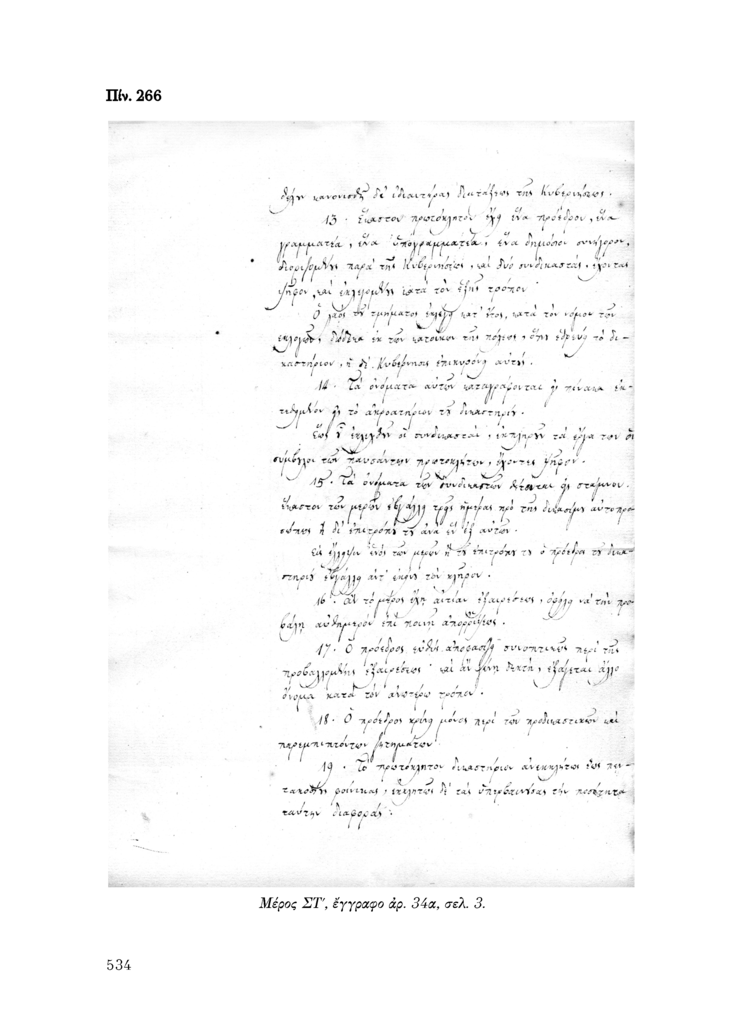 Πίν. 266
θέλει κανονισθῆ δι' ἰδιαιτέρας διατάξεως τῆς Κυβερνήσεως.
13. Ἕκαστον πρωτόκλητον ἔχει ἕνα πρόεδρον, ἕνα
γραμματέα, ἕνα ὑπογραμματέα, ἕνα δημόσιον συνήγορον,
διοριζομένους παρὰ τῆς Κυβερνήσεως, καὶ δύο συνδικαστάς, ἔχοντας
ψῆφον, καὶ ἐκλεγομένους κατὰ τὸν ἑξῆς τρόπον·
Ὁ λαὸς τοῦ τμήματος ἐκλέγει κατ' ἔτος, κατὰ τὸν νόμον τῶν
ἐκλογῶν, δώδεκα ἐκ τῶν κατοίκων τῆς πόλεως, ὅπου ἑδρεύει τὸ δι-
καστήριον, ἡ δὲ Κυβέρνησις ἐπικυρόνει αὐτούς.
14. Τὰ ὀνόματα αὐτῶν καταγράφονται εἰς πίνακα ἐκ-
τεθειμένον εἰς τὸ ἀκροατήριον τοῦ δικαστηρίου.
Ἕως οὗ ἐκλεχθῶν οἱ συνδικασταί, ἐκπληροῦν τὰ ἔργα των οἱ
σύμβουλοι τῶν παυσάντων πρωτοκλήτων, ἔχοντες ψῆφον.
15. Τὰ ὀνόματα τῶν συνδικαστῶν θέτονται εἰς στάμνον.
ἕκαστον τῶν μερῶν ἐβγάλλει τρεῖς ἡμέρας πρὸ τῆς δικασίμου αὐτοπρο-
σώπως ἢ δι' ἐπιτρόπου του ἀνὰ ἓν ἐξ αὐτῶν.
Εἰς ἔλλειψιν ἑνὸς τῶν μερῶν ἢ τοῦ ἐπιτρόπου του ὁ πρόεδρος τοῦ δικα-
στηρίου ἐβγάλλει ἀντ' ἐκείνου τὸν κλῆρον.
16. Ἂν τὸ μέρος ἔχῃ αἰτίαν ἐξαιρέσεως, ὀφείλει νὰ τὴν προ-
βάλῃ αὐθημερὸν ἐπὶ ποινῇ ἀπορρίψεως.
17. Ὁ πρόεδρος εὐθὺς ἀποφασίζει συνοπτικῶς περὶ τῆς
προβαλλομένης ἐξαιρέσεως· καὶ ἂν φανῇ δεκτή, ἐξάγεται ἄλλο
ὄνομα κατὰ τὸν ἀνωτέρω τρόπον.
18. Ὁ πρόεδρος κρίνει μόνος περὶ τῶν προδικαστικῶν καὶ
παρεμπιπτόντων ζητημάτων.
19. Τὸ πρωτόκλητον δικαστήριον ἀνεκκλήτως ἕως πεν-
τακοσίους φοίνικας, ἐκκλήτως δὲ τὰς ὑπερβαινούσας τὴν ποσότητα
ταύτην διαφοράς.
Μέρος ΣΤ', ἔγγραφο ἀρ. 34α, σελ. 3.
534